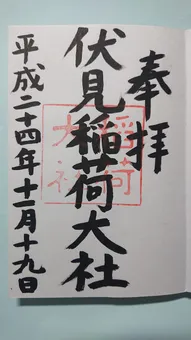 奉拝
伏見稲荷大社
稲荷
大社
平成二十四年十二月十九日